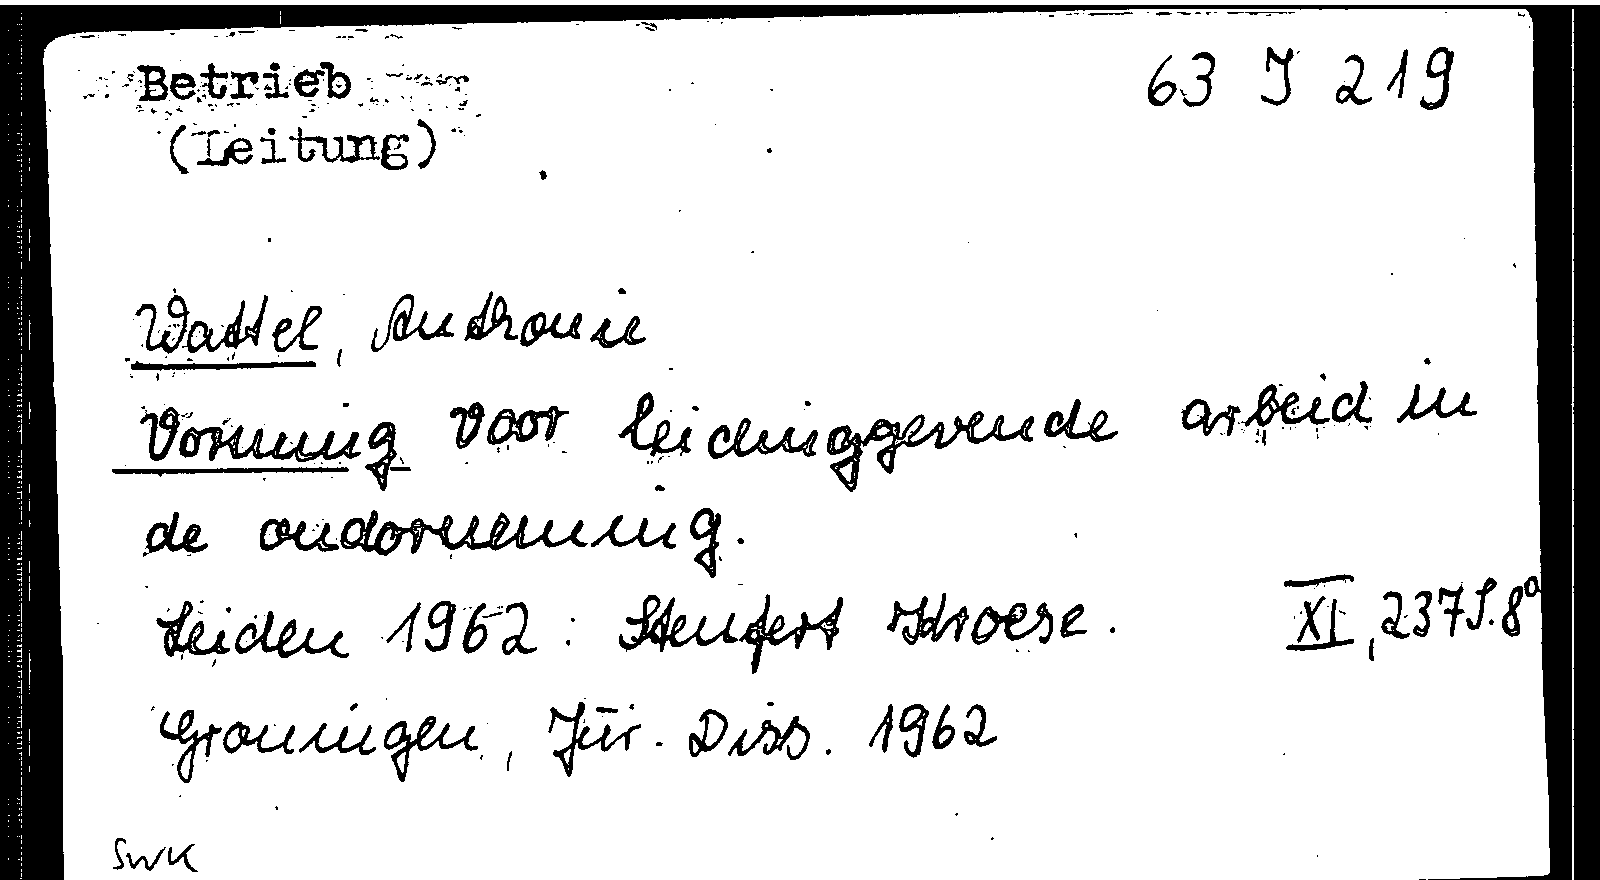 Betrieb
63 J 219
(Leitung)
Wattel, Anthonie
Vorming voor leidinggevende arbeid in
de onderneming.
Leiden 1962: Stenfert Kroese. XI, 237 S. 8°
Groningen, Jur. Diss. 1962
SWK